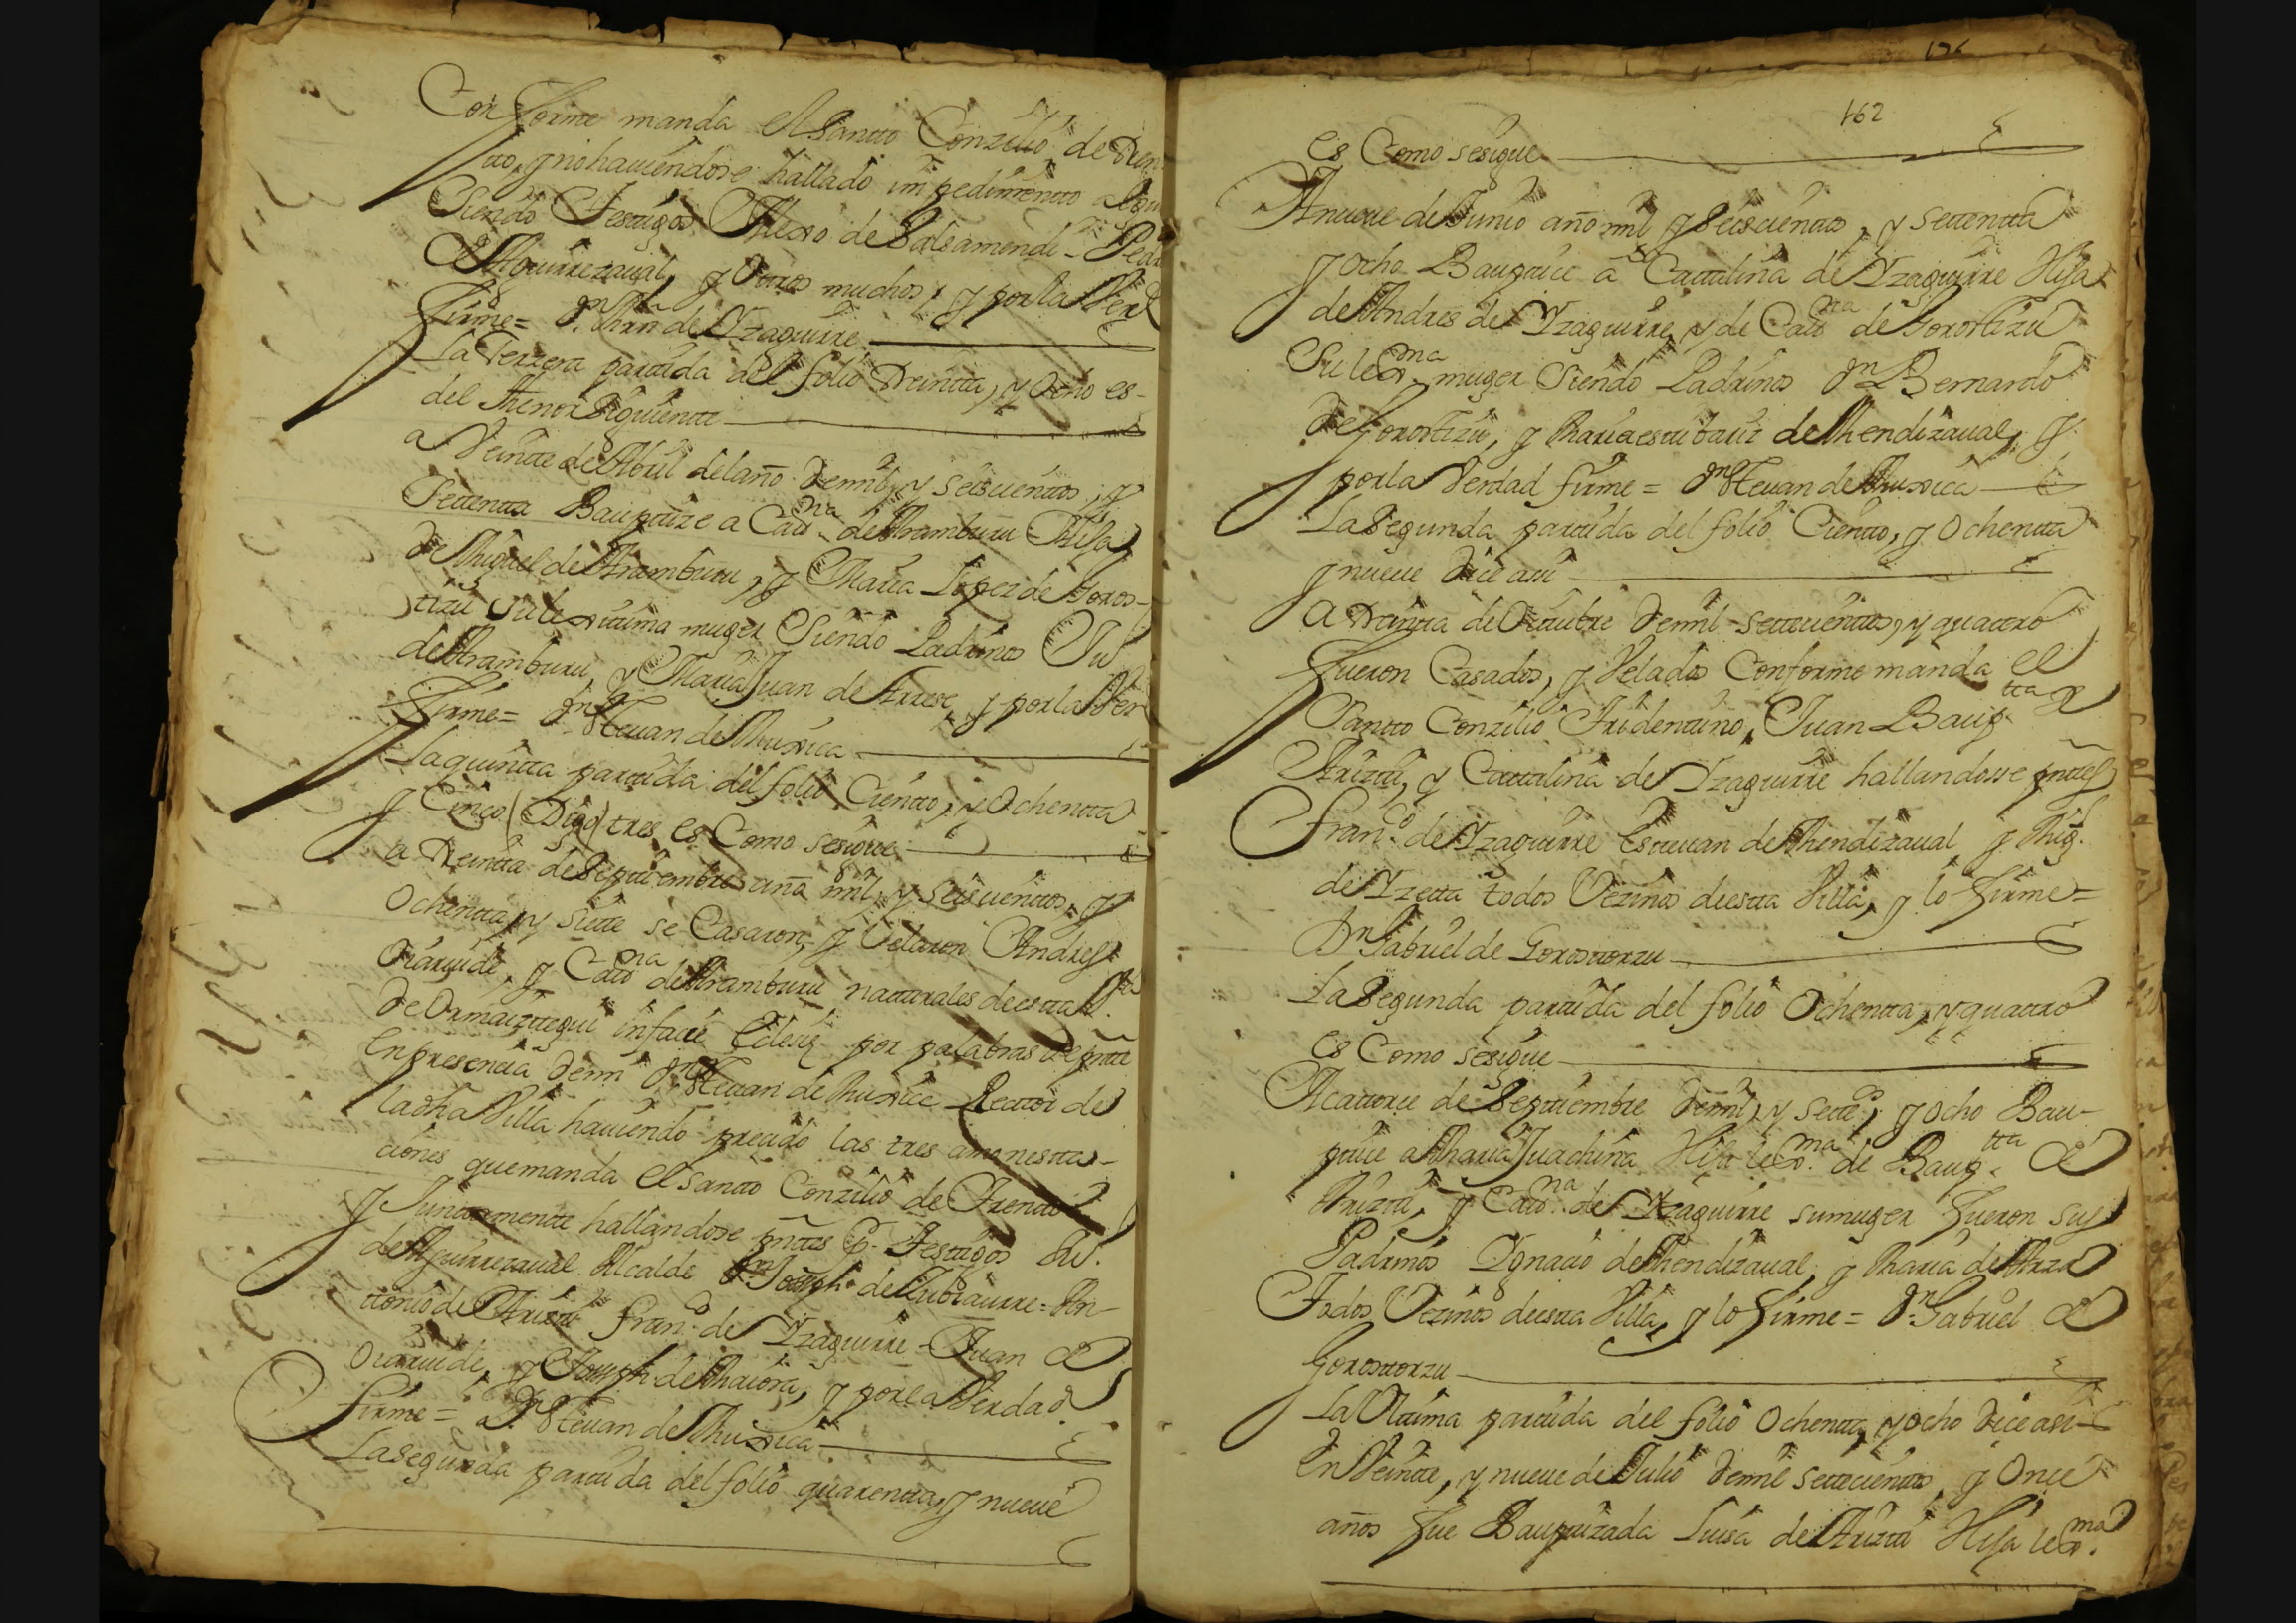 Conforme manda el Santto Conzilio de Tren
tto, y nohauiendose hallado impedimentto algu
Siendo Testigos Alexo de Balsamendi = Pedr
de Aguirrezaual, y Otros muchos, y por la Ver
firme = Dn Mrn de Yzaguirre
La Terzera parttida del folio Treintta, y Ocho es-
del thenor Siguientte
a Veintte de Abril del año Demil, y seiscienttos, y
Settentta Baupttize a Cattna de Aramburu Hija
de Miguel de Aramburu, y Maria Lopez de Goros-
tizu su lexittima muger Siendo Padrinos Ju
de Aramburu, y Maria Juan de Arrese, y por la Ver
firme = Dn Steuan de Muxica
La quintta parttida del folio Cientto, y Ochentta
y Cinco (Digo) tres es Como sesigue
a Treintta de Septtiembre año mil, y seiscienttos, y
Ochentta, y Siette se Casaron, y Velaron Andres
Oiaruide, y Cattna de Aramburu natturales desta Va
de Ormaizttegui infacie Eclesiæ por palabras de pntte
En presencia demi Dn Steuan de Muxica Rector de
la dha Villa hauiendo preuido las tres amonestta-
ciones quemanda el Santto Conzilio de Trentto
y Junttamentte hallandose pnttes Pr Testtigos Ju.
de Aguirrezaual Alcalde Dn Joseph de Zubiaurre = An-
ttonio de Ariztti Franco de Yzaguirre = Juan de
Oiaruide, y Joseph de Maiora, y por la Verdad
firme = Dn Steuan de Muxica
La segunda parttida del folio quarentta, y nueue
162
es Como sesigue
A nueue de Junio año mil y Seiscienttos, y settentta
y ocho Baupttice a Cattalina de Yzaguirre Hija
de Andres de Yzaguirre, y de Cattna de Gorostizu
Su lexma muger Siendo Padrinos Dn Bernardo
de Gorostizu, y Maria esttibariz de Mendizaual, y
por la Verdad firme = Dn Steuan de Muxica
La Segunda parttida del folio Cientto, y Ochentta
y nueue dice assi
A Treintta de Octtubre Demil settecienttos, y quattro
fueron Casados, y Velados Conforme manda el
Santto Conzilio Tridenttino, Juan Bauptta de
Ariztti, y Cattalina de Yzaguirre hallandosse pnttes
Franco de Yzaguirre Esteuan de Mendizaual y Migl
de Yzetta todos Vezinos deestta Villa, y lo firme =
Dn Gabriel de Gorosttorzu
La Segunda parttida del folio Ochentta, y quattro
es Como sesigue
A cattorce de Septtiembre Demil, y settos, y ocho Bau-
pttice a Maria Juachina Hija lexma de Baup.tta de
Ariztti, y Cattna de Yzaguirre sumuger fueron sus
Padrinos Ygnacio de Mendizaual, y Maria de Arza
Todos Vezinos deestta Villa, y lo firme = Dn Gabriel de
Gorosttorzu
La Ulttima parttida del folio Ochentta, y ocho dice asi
En Veintte, y nueue de Julio Demil settecienttos y Once
años fue Baupttizada Luisa de Ariztti Hija lexma